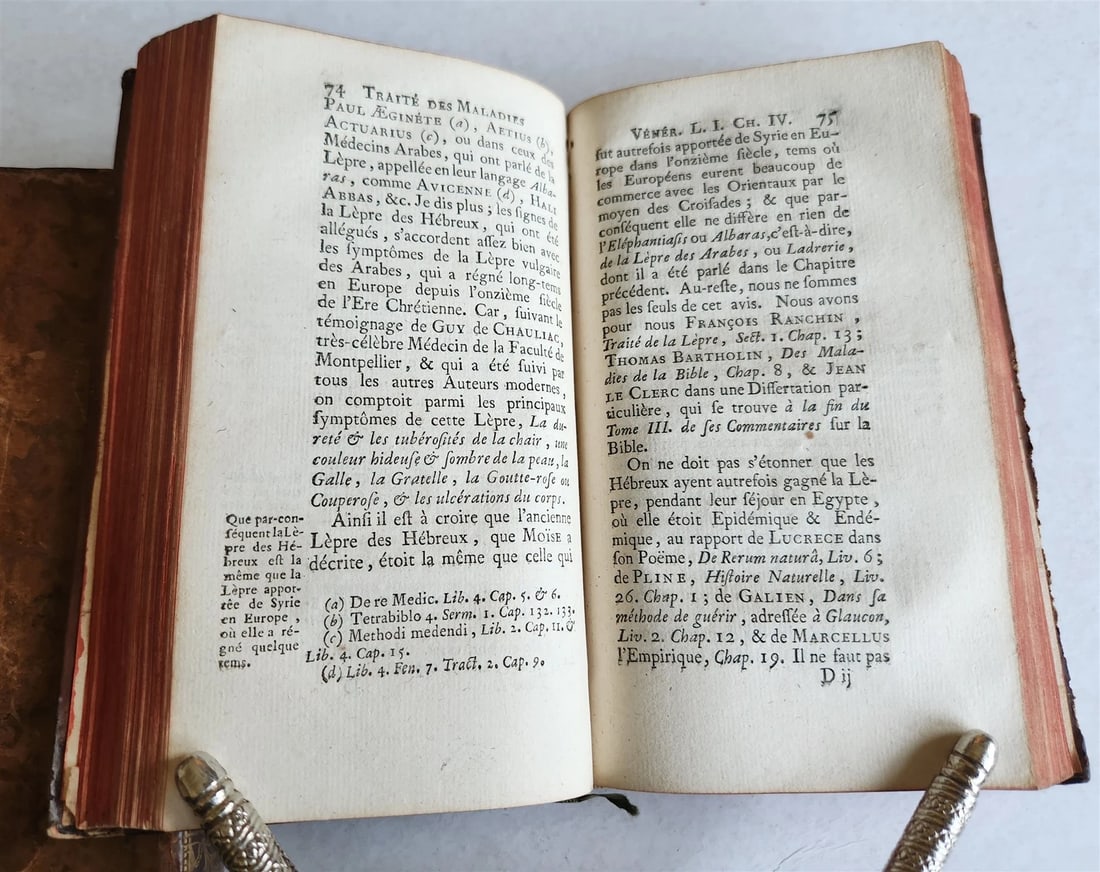 74 TRAITÉ DES MALADIES
PAUL ÆGINÉTE (a), AETIUS (b),
ACTUARIUS (c), ou dans ceux des
Médecins Arabes, qui ont parlé de la
Lèpre, appellée en leur langage Alba-
ras, comme AVICENNE (d), HALI
ABBAS, &c. Je dis plus; les ſignes de
la Lèpre des Hébreux, qui ont été
allégués, s'accordent aſſez bien avec
les ſymptômes de la Lèpre vulgaire
des Arabes, qui a régné long-tems
en Europe depuis l'onzième ſiècle
de l'Ere Chrétienne. Car, ſuivant le
témoignage de GUY de CHAULIAC,
très-célèbre Médecin de la Faculté de
Montpellier, & qui a été ſuivi par
tous les autres Auteurs modernes,
on comptoit parmi les principaux
ſymptômes de cette Lèpre, La du-
reté & les tubéroſités de la chair, une
couleur hideuſe & ſombre de la peau, la
Galle, la Gratelle, la Goutte-roſe ou
Couperoſe, & les ulcérations du corps.
Ainſi il eſt à croire que l'ancienne
Lèpre des Hébreux, que MOÏSE a
décrite, étoit la même que celle qui
Que par-con-
ſéquent la Lè-
pre des Hé-
breux eſt la
même que la
Lèpre appor-
tée de Syrie
en Europe,
où elle a ré-
gné quelque
tems.
(a) De re Medic. Lib. 4. Cap. 5. & 6.
(b) Tetrabiblo 4. Serm. 1. Cap. 132. 133.
(c) Methodi medendi, Lib. 2. Cap. 11. &
Lib. 4. Cap. 15.
(d) Lib. 4. Fen. 7. Tract. 2. Cap. 9.
VÉNÉR. L. I. CH. IV. 75
fut autrefois apportée de Syrie en Eu-
rope dans l'onzième ſiècle, tems où
les Européens eurent beaucoup de
commerce avec les Orientaux par le
moyen des Croiſades; & que par-
conſéquent elle ne diffère en rien de
l'Eléphantiaſis ou Albaras, c'eſt-à-dire,
de la Lèpre des Arabes, ou Ladrerie,
dont il a été parlé dans le Chapitre
précédent. Au-reſte, nous ne ſommes
pas les ſeuls de cet avis. Nous avons
pour nous FRANÇOIS RANCHIN,
Traité de la Lèpre, Sect. 1. Chap. 13;
THOMAS BARTHOLIN, Des Mala-
dies de la Bible, Chap. 8, & JEAN
LE CLERC dans une Diſſertation par-
ticulière, qui ſe trouve à la fin du
Tome III. de ſes Commentaires ſur la
Bible.
On ne doit pas s'étonner que les
Hébreux ayent autrefois gagné la Lè-
pre, pendant leur ſéjour en Egypte,
où elle étoit Epidémique & Endé-
mique, au rapport de LUCRECE dans
ſon Poëme, De Rerum naturâ, Liv. 6;
de PLINE, Hiſtoire Naturelle, Liv.
26. Chap. 1; de GALIEN, Dans ſa
méthode de guérir, adreſſée à Glaucon,
Liv. 2. Chap. 12, & de MARCELLUS
l'Empirique, Chap. 19. Il ne faut pas
D ij